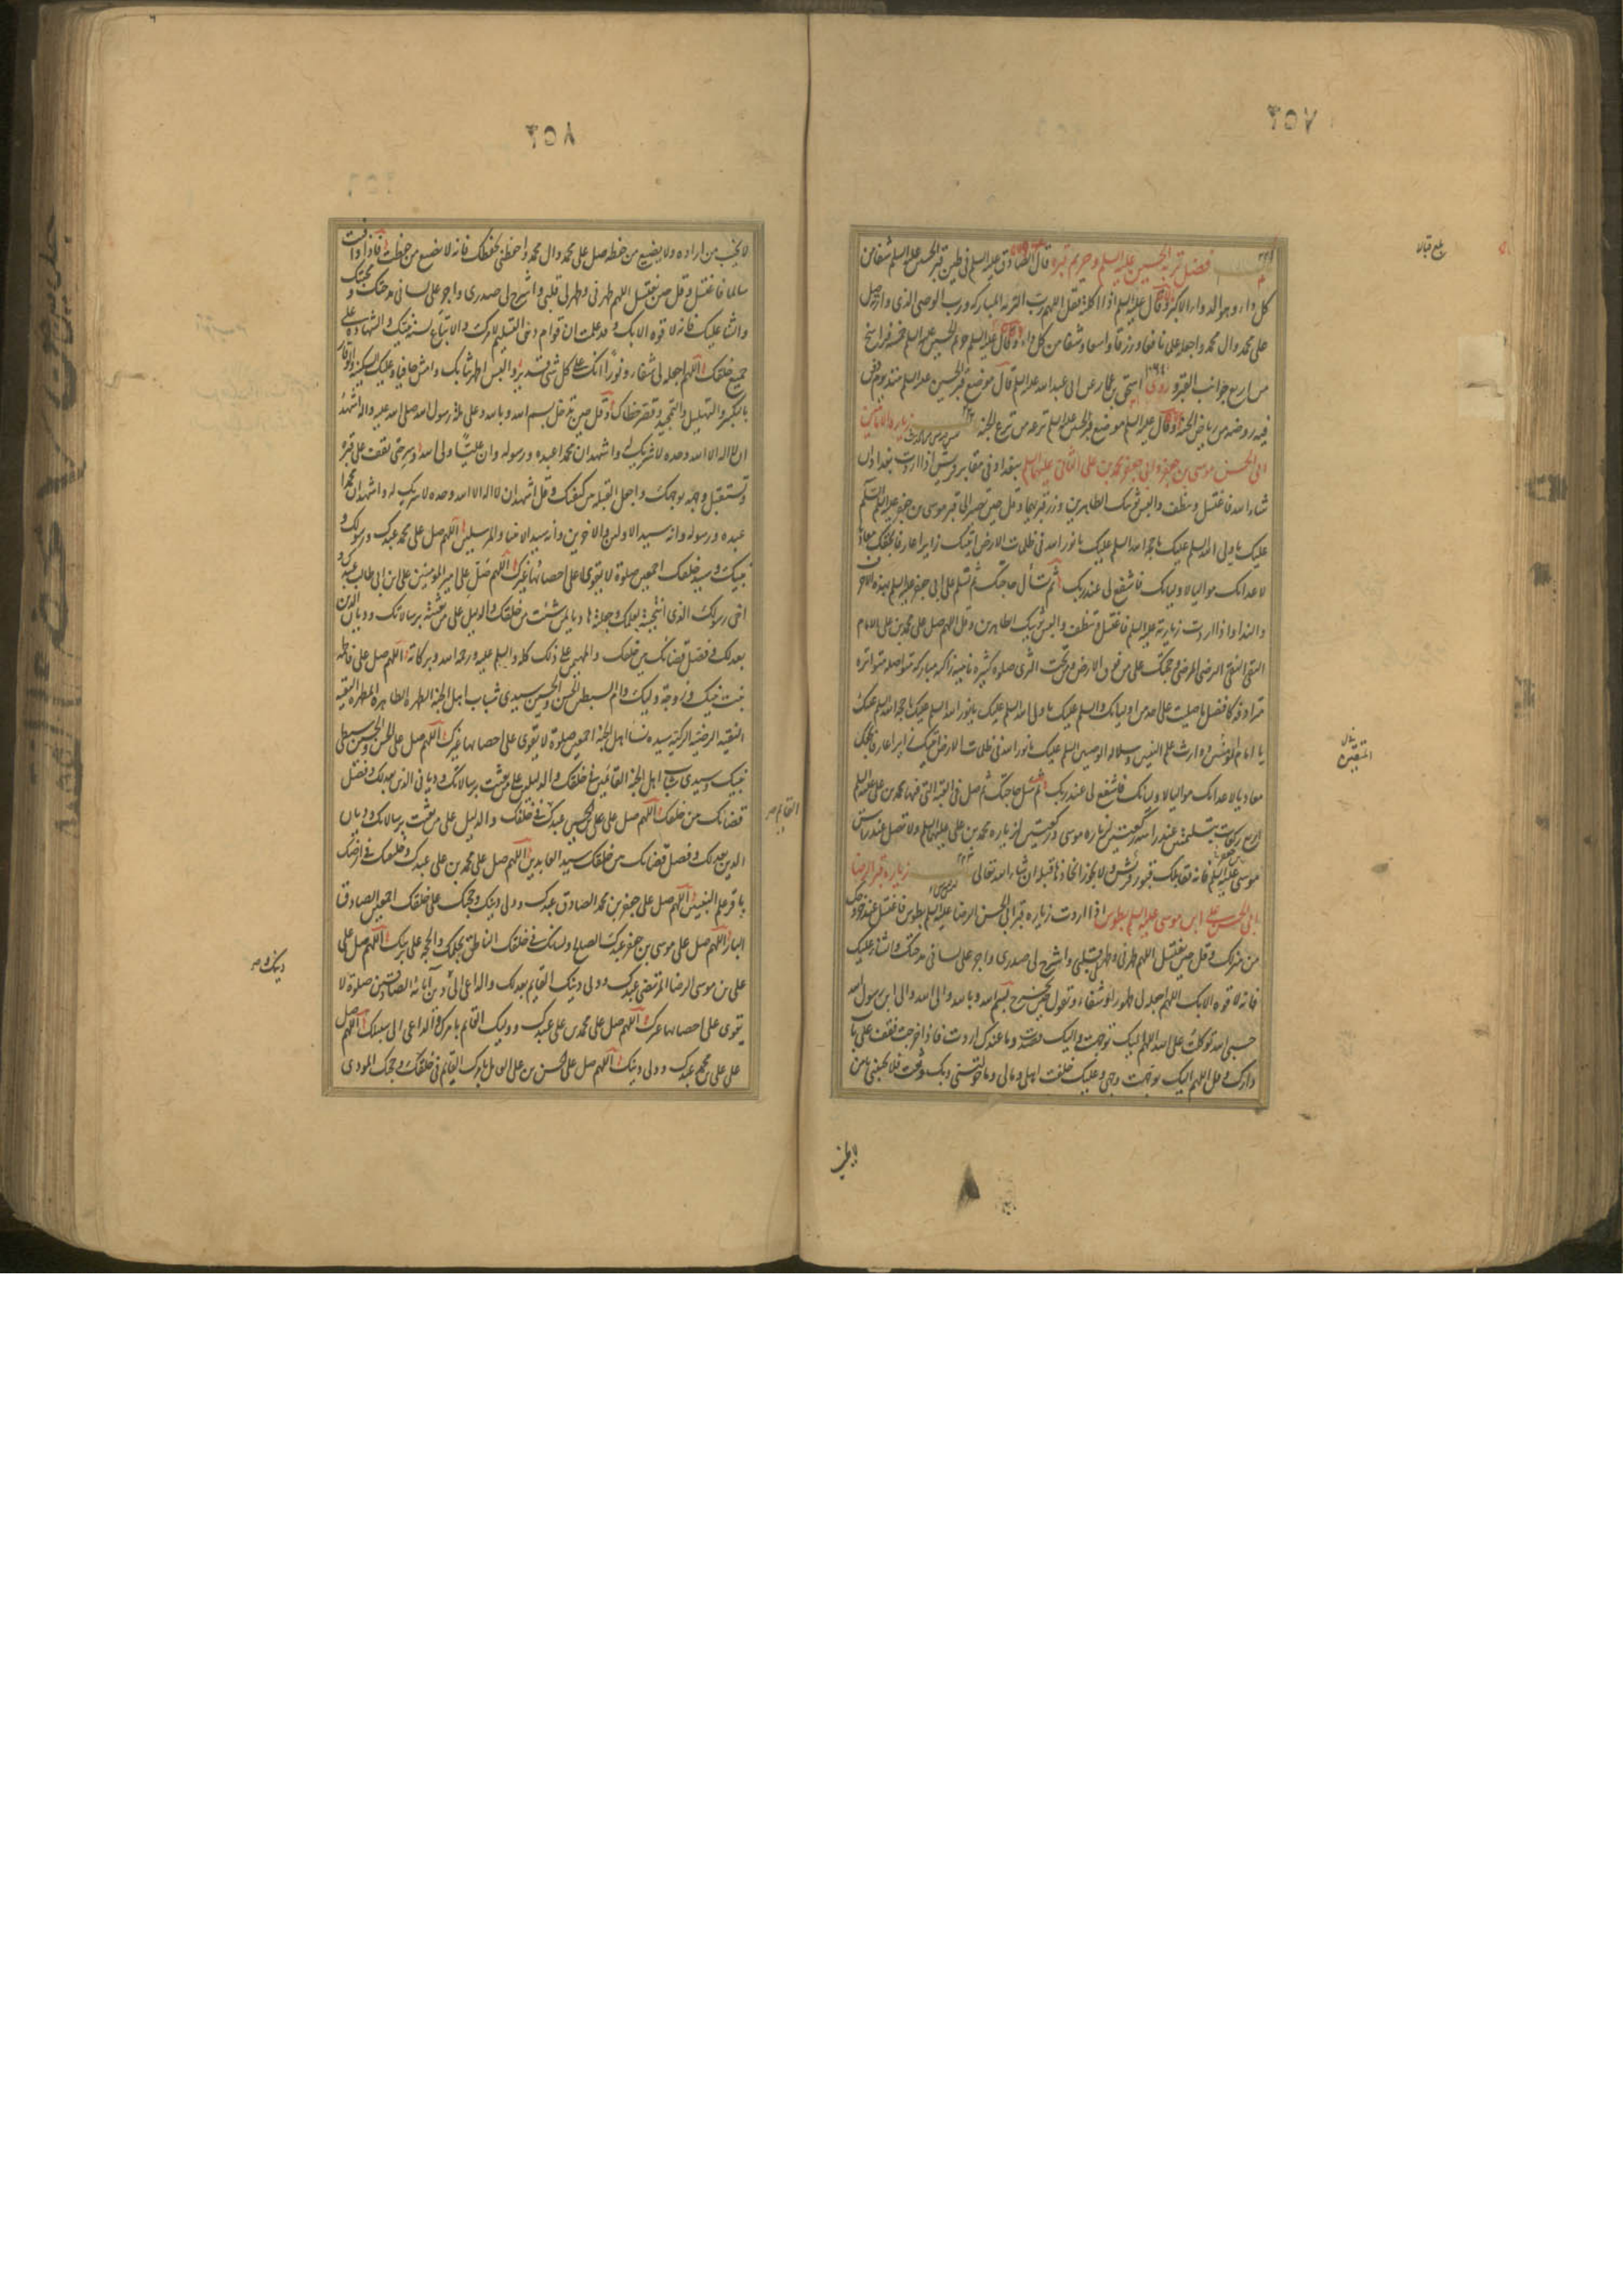 ٢٥٧
بلغ قبالا
فضل تربة الحسين عليه السلم وحريم قبره قال الصادق عليه السلم في طين قبر الحسين عليه السلم شفا من
كل داء وهو الدواء الاكبر وقال عليه السلم اذا اكلته فقل اللهم رب التربة المباركة ورب الوصي الذي وارته صل
على محمد وال محمد واجعله علما نافعا ورزقا واسعا وشفا من كل داء وقال عليه السلم حرم الحسين عليه السلم خمسة فراسخ
من اربع جوانب القبر وروى اسحق بن عمار عن ابي عبد الله عليه السلم قال موضع قبر الحسين عليه السلم منذ يوم دفن
فيه روضة من رياض الجنة وقال عليه السلم موضع قبر الحسين عليه السلم ترعة من ترع الجنة زيارة الامامين
ابي الحسن موسى بن جعفر وابي جعفر محمد بن علي الثاني عليهما السلم ببغداد في مقابر قريش اذا اردت بغداد ان
شاء الله فاغتسل وتنظف والبس ثوبيك الطاهرين وزر قبريهما وقل حين تصير الى قبر موسى بن جعفر عليه السلم السلم
عليك يا ولي الله السلم عليك يا حجة الله السلم عليك يا نور الله في ظلمات الارض اتيتك زايرا عارفا بحقك معاديا
لاعدائك مواليا لاوليائك فاشفع لي عند ربك ثم تسأل حاجتك ثم تسلم على ابي جعفر عليه السلم بهذه الاحرف
والبدا واذا اردت زيارته عليه السلم فاغتسل وتنظف والبس ثوبيك الطاهرين وقل اللهم صل على محمد بن علي الامام
التقي النقي الرضي المرضي وحجتك على من فوق الارض ومن تحت الثرى صلوة كثيرة نامية زاكية مباركة متواصلة متواترة
مترادفة كافضل ما صليت على احد من اوليائك والسلم عليك يا ولي الله السلم عليك يا نور الله السلم عليك يا حجة الله السلم عليك
يا امام المؤمنين ووارث علم النبيين وسلالة الوصيين السلم عليك يا نور الله في ظلمات الارض اتيتك زايرا عارفا بحقك
معاديا لاعدائك مواليا لاوليائك فاشفع لي عند ربك ثم سل حاجتك ثم صل في القبة التي فيها محمد بن علي عليه السلم
اربع ركعات بتسليمتين عند راسه ركعتين لزيارة موسى وركعتين لزيارة محمد بن علي عليهما السلم ولا تصل عند راس
موسى عليه السلم فانه يقابلك قبور قريش ولا يجوز اتخاذها قبلة ان شاء الله تعالى زيارة قبر الرضا
ابي الحسن علي ابن موسى عليه السلم بطوس اذا اردت زيارة قبر ابي الحسن الرضا عليه السلم بطوس فاغتسل عند خروجك
من منزلك وقل حين تغتسل اللهم طهرني وطهر لي قلبي واشرح لي صدري واجر على لساني مدحتك والثناء عليك
فانه لا قوة الا بك اللهم اجعله لي طهورا وشفاء وتقول حين تخرج بسم الله وبالله والى الله والى ابن رسول الله
حسبي الله توكلت على الله اللهم اليك توجهت واليك قصدت وما عندك اردت فاذا خرجت فقف على باب
دارك وقل اللهم اليك توجهت وجهي وعليك خلفت اهلي ومالي وما خولتني وبك وثقت فلا تخيبني يا من
٢٥٨
لا يخيب من اراده ولا يضيع من حفظه صل على محمد وال محمد واحفظني بحفظك فانه لا يضيع من حفظت فاذا وافيت
سالما فاغتسل وقل حين تغتسل اللهم طهرني وطهر لي قلبي واشرح لي صدري واجر على لساني مدحتك ومحبتك
والثناء عليك فانه لا قوة الا بك وقد علمت ان قوام ديني التسليم لامرك والاتباع لسنة نبيك والشهادة على
جميع خلقك اللهم اجعله لي شفاء ونورا انك على كل شي قدير والبس اطهر ثيابك وامش حافيا وعليك السكينة والوقار
بالتكبير والتهليل والتمجيد وقصر خطاك وقل حين تدخل بسم الله وبالله وعلى ملة رسول الله صلى الله عليه واله اشهد
ان لا اله الا الله وحده لا شريك له واشهد ان محمدا عبده ورسوله وان عليا ولي الله وسر حتى تقف على قبره
وتستقبل وجهه بوجهك واجعل القبلة بين كتفيك وقل اشهد ان لا اله الا الله وحده لا شريك له واشهد ان محمدا
عبده ورسوله وانه سيد الاولين والاخرين وانه سيد الانبيا والمرسلين اللهم صل على محمد عبدك ورسولك و
نبيك وسيد خلقك اجمعين صلوة لا يقوى على احصائها غيرك اللهم صل على امير المؤمنين علي بن ابي طالب عبدك و
اخي رسولك الذي انتجبته بعلمك وجعلته هاديا لمن شئت من خلقك والدليل على من بعثته برسالاتك وديان الدين
بعدلك وفصل قضائك بين خلقك والمهيمن على ذلك كله والسلم عليه ورحمة الله وبركاته اللهم صل على فاطمة
بنت نبيك وزوجة وليك وام السبطين الحسن والحسين سيدي شباب اهل الجنة الطهرة الطاهرة المطهرة التقية
النقية الرضية الزكية سيدة نساء اهل الجنة اجمعين صلوة لا يقوى على احصائها غيرك اللهم صل على الحسن والحسين سبطي
نبيك وسيدي شباب اهل الجنة القائمين في خلقك والدليلين على من بعثت برسالاتك ودياني الدين بعدلك وفصلي
قضائك بين خلقك اللهم صل على علي بن الحسين عبدك في خلقك والدليل على من بعثت برسالاتك وديان
الدين بعدلك وفصل قضائك بين خلقك سيد العابدين اللهم صل على محمد بن علي عبدك وخليفتك في ارضك
باقر علم النبيين اللهم صل على جعفر بن محمد الصادق عبدك وولي دينك وحجتك على خلقك اجمعين الصادق
البار اللهم صل على موسى بن جعفر عبدك الصالح ولسانك في خلقك الناطق بحكمك والحجة على بريتك اللهم صل على
علي بن موسى الرضا المرتضى عبدك وولي دينك القايم بعدلك والداعي الى دينك ودين آبائه الصادقين صلوة لا
يقوى على احصائها غيرك اللهم صل على محمد بن علي عبدك ووليك القائم بامرك والداعي الى سبيلك اللهم صل
على علي بن محمد عبدك وولي دينك اللهم صل على الحسن بن علي العامل بامرك القايم في خلقك وحجتك المودي
القايم